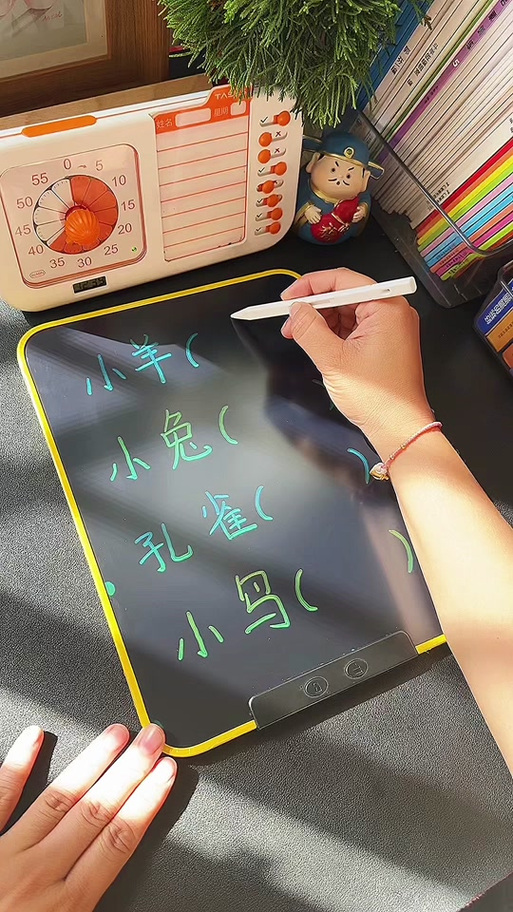 TAS
姓名 星期
55 0 5
50 10
45 15
40 20
35 30 25
小羊( )
小兔( )
孔雀( )
小鸟( )